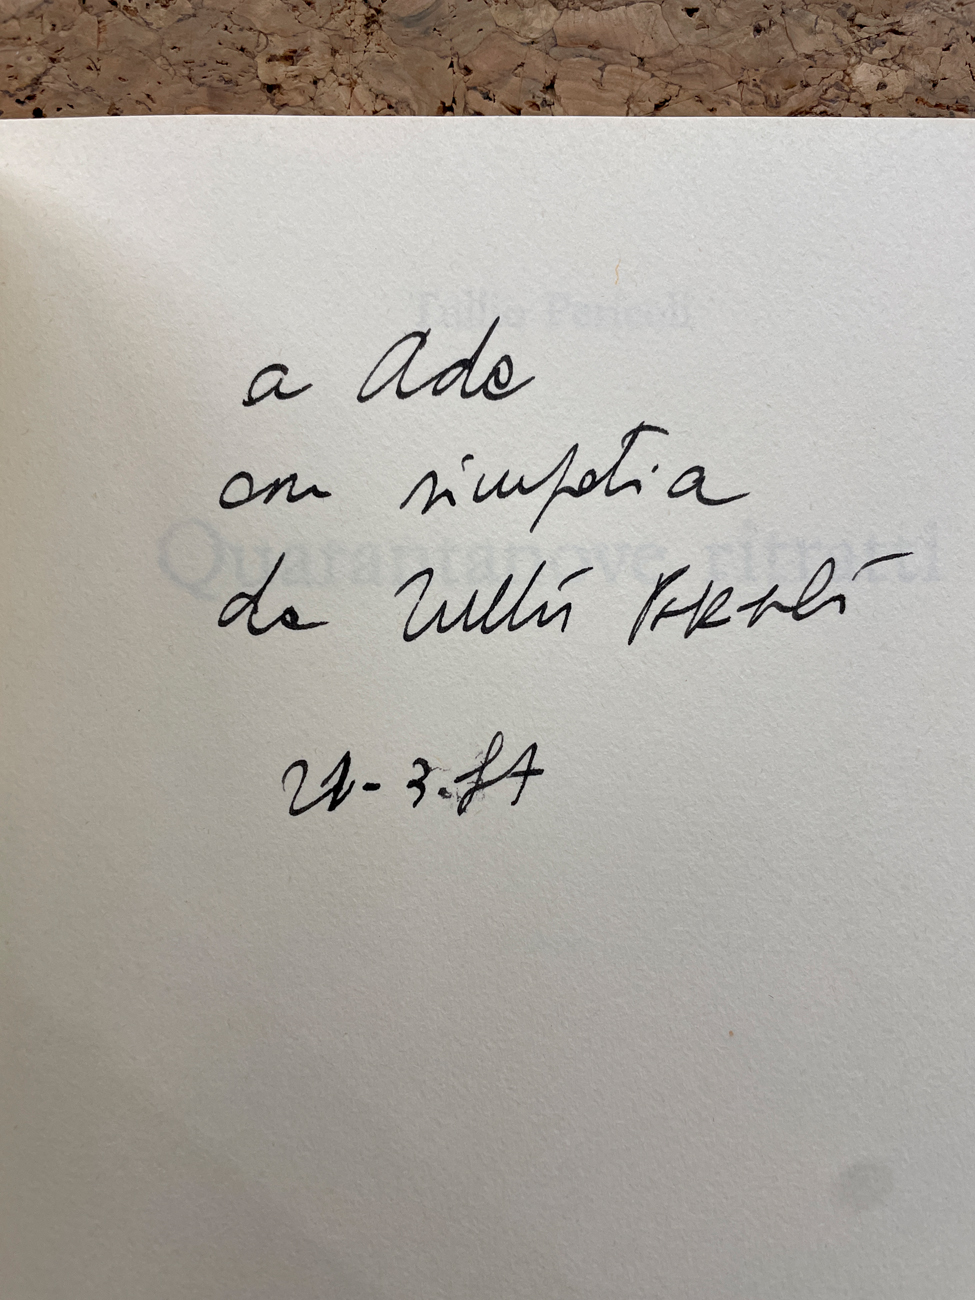 Tullio Pericoli
a Ade
con simpatia
Quarantanove ritratti
da Tullio Pericoli
21-3.87